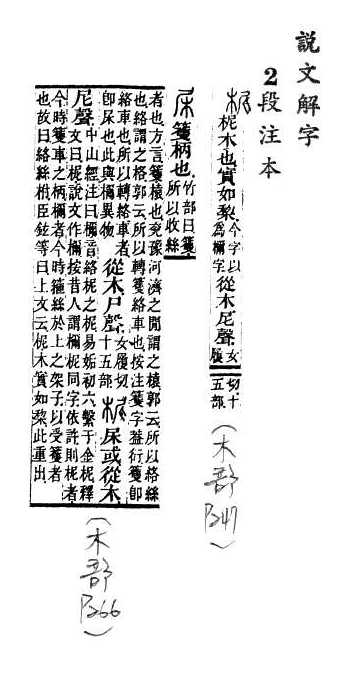 說文解字
2段注本
柅 柅木也實如棃今字以爲檷字從木尼聲女履切十五部
(木部P.247)
㞏 籰柄也竹部曰籰所以收絲
者也方言籰榬也兗豫河濟之閒謂之榬郭云所以絡絲
也絡謂之格郭云所以轉籰絡車也按注籰字葢衍籰卽
絡車也所以轉絡車者
卽㞏也此與檷異物從木尸聲女履切十五部柅㞏或從木
尼聲中山經注曰檷音絡柅之柅易姤初六繫于金柅釋
文曰柅說文作檷按昔人謂檷柅同字依許則柅者
今時籰車之柄檷者今時籆絲於上之架子以受籰者
也故曰絡絲柎臣鉉等曰上文云柅木實如棃此重出
(木部P.266)